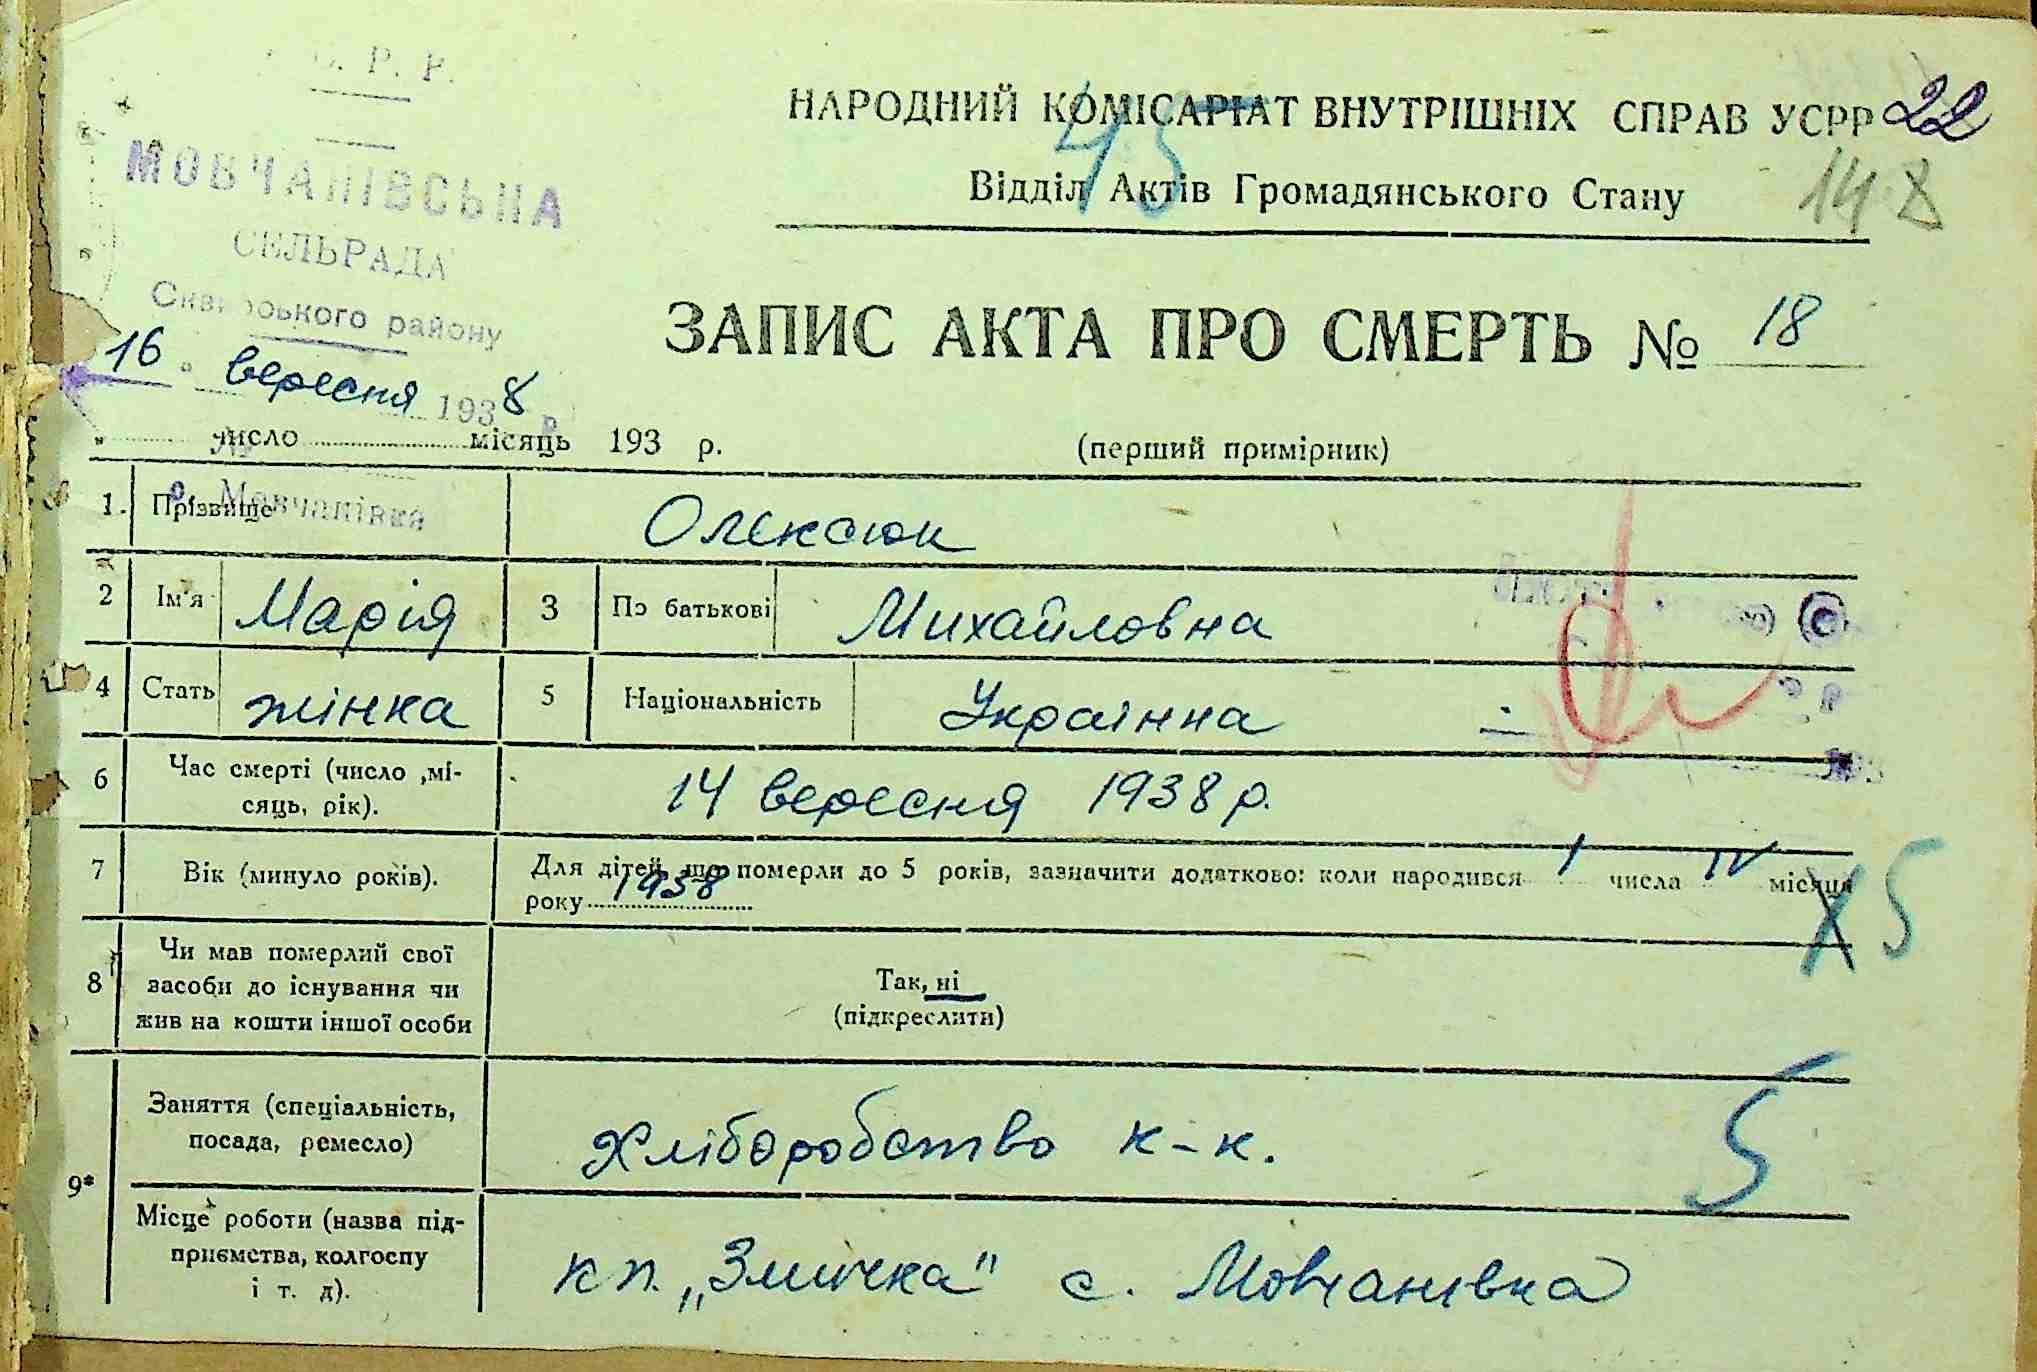 Р. Р.
НАРОДНИЙ КОМІСАРІАТ ВНУТРІШНІХ СПРАВ УСРР 22
45
Відділ Актів Громадянського Стану 148
МОВЧАНІВСЬКА
СЕЛЬРАДА
району
ЗАПИС АКТА ПРО СМЕРТЬ № 18
16 вересня 1938 р
число місяць 193 р. (перший примірник)
1. Прізвище Олексюк
с. Мовчанівка
2 Ім'я Марія 3 По батькові Михайловна
4 Стать жінка 5 Національність Українка
6 Час смерті (число ,мі-
сяць, рік). 14 вересня 1938 р.
7 Вік (минуло років). Для дітей, що померли до 5 років, зазначити додатково: коли народився 1 числа IV місяця
року 1938
5
8 Чи мав померлий свої
засоби до існування чи
жив на кошти іншої особи
Так, ні
(підкреслити)
9* Заняття (спеціальність,
посада, ремесло) Хліборобство к-к.
5
Місце роботи (назва під-
приємства, колгоспу
і т. д). кп. „Змичка" с. Мовчанівка